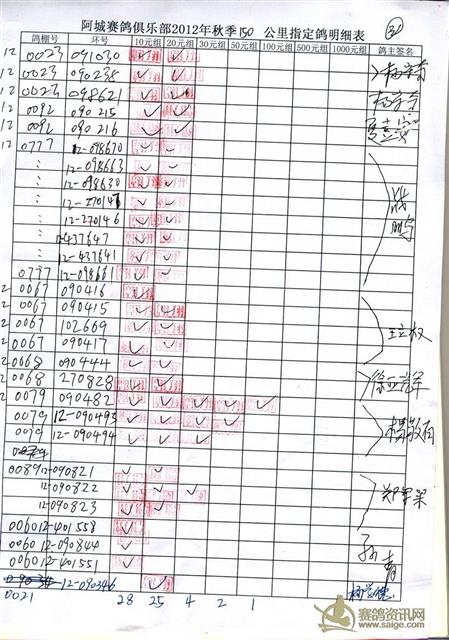 阿城赛鸽俱乐部2012年秋季150 公里指定鸽明细表 ③
鸽棚号 环号 10元组 20元组 30元组 50元组 100元组 300元组 500元组 1000元组 鸽主签名
12 0023 091030 ✓ ✓
12 0023 090238 ✓ ✓
12 0023 098621 ✓ ✓
12 0092 090215 ✓ ✓
12 0092 090216 ✓ ✓
12 0777 12-098670 ✓ ✓
: 12-098663 ✓ ✓
: 12-098630 ✓ ✓
: 12-270147 ✓ ✓
: 12-270146 ✓ ✓
: 12-437647 ✓ ✓
: 12-437641 ✓ ✓
0777 12-098661 ✓ ✓
2 0067 090416 ✓
2 0067 090415 ✓ ✓
2 0067 102669 ✓ ✓
2 0067 090417 ✓ ✓ 王立权
2 0068 090444 ✓ ✓
2 0068 270828 ✓ ✓
2 0079 090482 ✓ ✓ ✓ ✓ ✓
0079 12-090495 ✓ ✓ ✓ ✓
0079 12-090494 ✓ ✓ ✓
0089 12-090821 ✓ ✓
12-090822 ✓ ✓ ✓
12-090823 ✓ ✓
0060 12-401558 ✓
0060 12-090844 ✓
0060 12-401551 ✓
12-090346 ✓
0021 28 25 4 2 1
赛鸽资讯网
www.saige.com